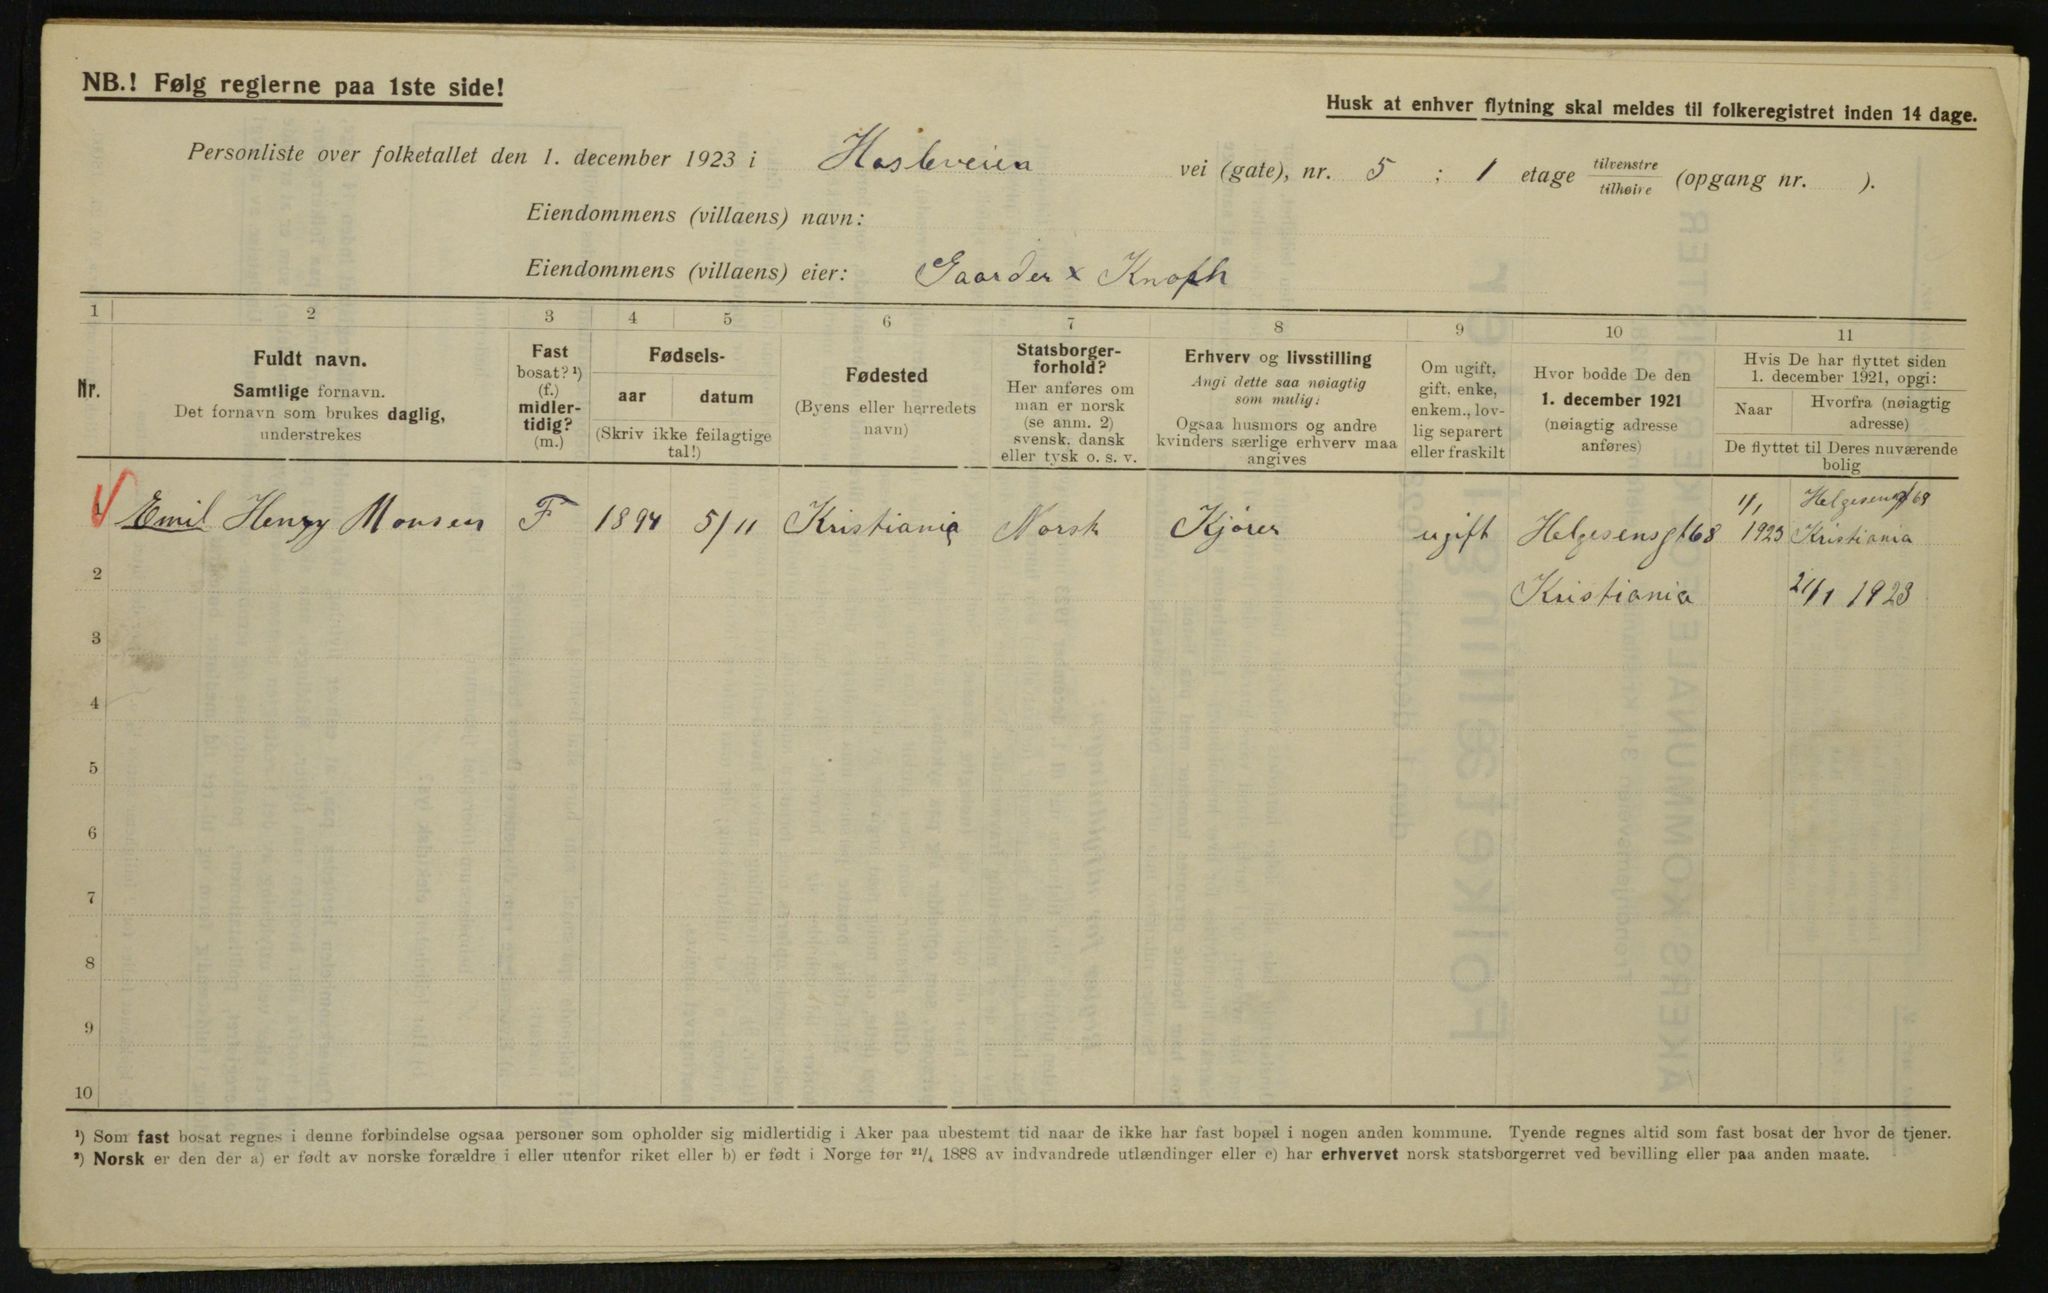 NB.! Følg reglerne paa 1ste side!
Husk at enhver flytning skal meldes til folkeregistret inden 14 dage.
Personliste over folketallet den 1. december 1923 i Hasleveien vei (gate), nr. 5 ; 1 etage tilvenstre tilhøire (opgang nr. ).
Eiendommens (villaens) navn:
Eiendommens (villaens) eier: Gaarder x Knoph
1 2 3 4 5 6 7 8 9 10 11
Nr.
Fuldt navn.
Samtlige fornavn.
Det fornavn som brukes daglig,
understrekes
Fast
bosat? ¹)
(f.)
midler-
tidig?
(m.)
Fødsels-
aar datum
(Skriv ikke feilagtige
tal!)
Fødested
(Byens eller herredets
navn)
Statsborger-
forhold?
Her anføres om
man er norsk
(se anm. 2)
svensk, dansk
eller tysk o. s. v.
Erhverv og livsstilling
Angi dette saa nøiagtig
som mulig:
Ogsaa husmors og andre
kvinders særlige erhverv maa
angives
Om ugift,
gift, enke,
enkem., lov-
lig separert
eller fraskilt
Hvor bodde De den
1. december 1921
(nøiagtig adresse
anføres)
Hvis De har flyttet siden
1. december 1921, opgi:
Naar Hvorfra (nøiagtig
adresse)
De flyttet til Deres nuværende
bolig
1 Emil Henry Monsen F 1894 5/11 Kristiania Norsk Kjører ugift Helgesensgt 68 1/1 1923 Helgesensgt 69 Kristiania
2 Kristiania 2/1 1923
3
4
5
6
7
8
9
10
¹) Som fast bosat regnes i denne forbindelse ogsaa personer som opholder sig midlertidig i Aker paa ubestemt tid naar de ikke har fast bopæl i nogen anden kommune. Tyende regnes altid som fast bosat der hvor de tjener.
²) Norsk er den der a) er født av norske forældre i eller utenfor riket eller b) er født i Norge før 21/4 1888 av indvandrede utlændinger eller c) har erhvervet norsk statsborgerret ved bevilling eller paa anden maate.